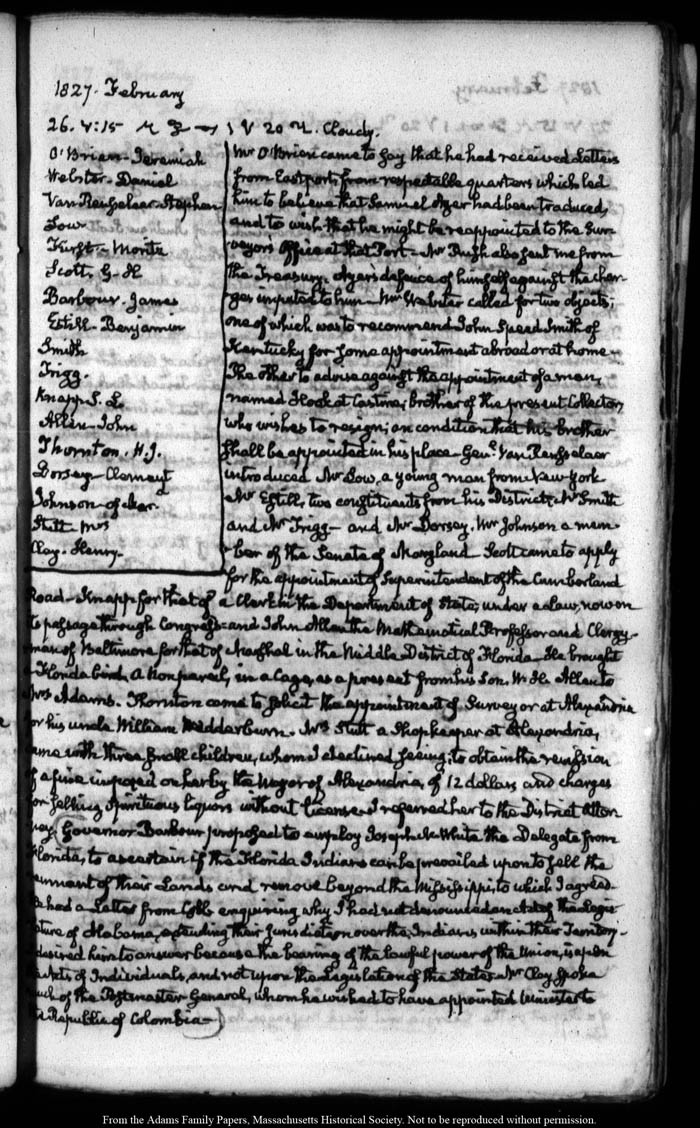 1827. February
26. V:15
V 20
Cloudy.
O'Brien - Jeremiah
Webster - Daniel
Van Rensselaer - Stephen
Low
Hurst - Monte
Scott, G. H
Barbour - James
Estill - Benjamin
Smith
Trigg.
Knapp S. L.
Allen - John
Thornton. H. J.
Dorsey - Clement
Johnson - of
Stutt - Mrs
Clay - Henry
Mr O'Brien came to say that he had received Letters
from Eastport, from respectable quarters which led
him to believe that Samuel Ayer had been traduced,
and to wish that he might be reappointed to the Sur-
veyors Office at that Port - Mr Rush also sent me from
the Treasury, Ayers defence of himself against the char-
ges imputed to him - Mr Webster called for two objects;
one of which was to recommend John Speed Smith of
Kentucky for some appointment abroad or at home -
The other to advise against the appointment of a man,
named Hook at Castine, brother of the present Collector,
who wishes to resign; on condition that his brother
shall be appointed in his place - Genl. Van Rensselaer
introduced Mr Low, a young man from New-York
Mr Estill, two constituents from his District, Mr Smith
and Mr Trigg - and Mr Dorsey, Mr Johnson a mem-
ber of the Senate of Maryland. Scott came to apply
for the appointment of Superintendent of the Cumberland
Road - Knapp for that of a Clerk in the Department of State, under a Law, now on
its passage through Congress - and John Allen the Mathematical Professor and Clergy-
man of Baltimore for that of Marshal in the Middle District of Florida - He brought
a Florida bird, a Nonpareil, in a Cage, as a present from his Son. W. H. Allen to
Mrs Adams. Thornton came to solicit the appointment of Surveyor at Alexandria
for his uncle William Wedderburn. Mrs Stutt a Shopkeeper at Alexandria,
came with three small children, whom I declined seeing; to obtain the remission
of a fine imposed on her by the Mayor of Alexandria, of 12 dollars and charges
for selling spirituous liquors without license - I referred her to the District Attor-
ney. Governor Barbour proposed to employ Joseph M. White the Delegate from
Florida, to ascertain if the Florida Indians can be prevailed upon to sell the
remnant of their Lands and remove beyond the Mississippi, to which I agreed.
He had a Letter from Cobb enquiring why I had not denounced an Act of the Legis-
lature of Alabama, extending their Jurisdiction over the Indians within their Territory.
I desired him to answer because the bearing of the lawful power of the Union, is upon
the Acts of Individuals, and not upon the Legislation of the States - Mr Clay spoke
much of the Postmaster General, whom he wished to have appointed Minister to
the Republic of Colombia -
From the Adams Family Papers, Massachusetts Historical Society. Not to be reproduced without permission.